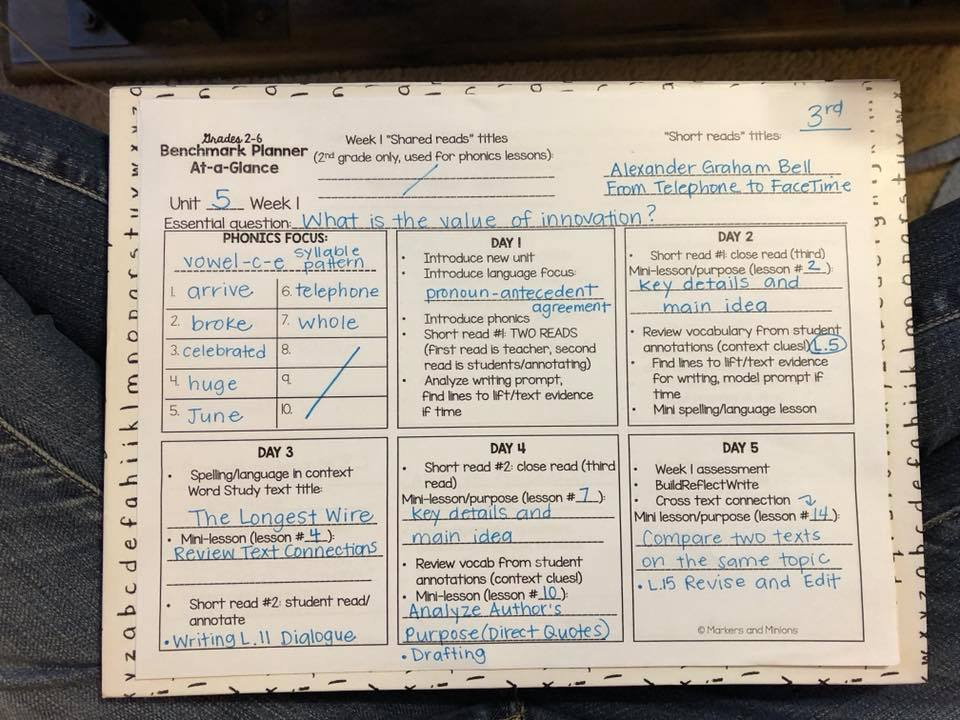 3rd
Grades 2-6
Benchmark Planner
At-a-Glance
Week 1 "Shared reads" titles
(2nd grade only, used for phonics lessons):
"Short reads" titles:
Alexander Graham Bell
From Telephone to FaceTime
Unit 5 Week 1
Essential question: What is the value of innovation?
PHONICS FOCUS:
vowel-c-e syllable
pattern
1. arrive
2. broke
3. celebrated
4. huge
5. June
6. telephone
7. whole
8.
9.
10.
DAY 1
• Introduce new unit
• Introduce language focus:
pronoun-antecedent
agreement
• Introduce phonics
• Short read #1: TWO READS
(first read is teacher, second
read is students/annotating)
• Analyze writing prompt,
find lines to lift/text evidence
if time
DAY 2
• Short read #1: close read (third)
Mini-lesson/purpose (lesson #2):
key details and
main idea
• Review vocabulary from student
annotations (context clues!) L.5
• Find lines to lift/text evidence
for writing, model prompt if
time
• Mini spelling/language lesson
DAY 3
• Spelling/language in context
Word Study text title:
The Longest Wire
• Mini-lesson (lesson #4):
Review Text Connections
• Short read #2: student read/
annotate
• Writing L.11 Dialogue
DAY 4
• Short read #2: close read (third
read)
Mini-lesson/purpose (lesson #7):
key details and
main idea
• Review vocab from student
annotations (context clues!)
• Mini-lesson (lesson #10):
Analyze Author's
Purpose (Direct Quotes)
• Drafting
DAY 5
• Week 1 assessment
• BuildReflectWrite
• Cross text connection
Mini lesson/purpose (lesson #14):
Compare two texts
on the same topic
• L.15 Revise and Edit
© Markers and Minions